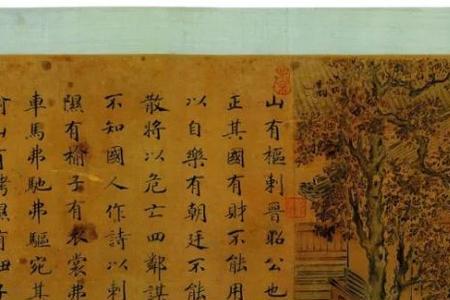 山有樞刺晉昭公也
正其國有財不能用
以自樂有朝廷不能
散將以危亡四鄰謀
不知國人作詩以刺
隰有榆子有衣裳弗
車馬弗馳弗驅宛其
山有栲隰有杻子